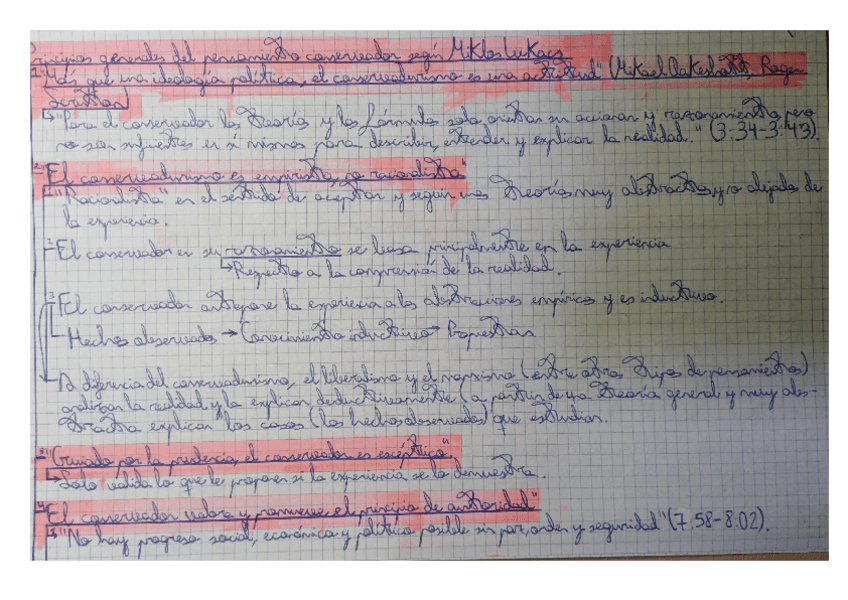 Principios generales del pensamiento conservador según Miklos Lukacs
1. "Más que una ideología política, el conservadurismo es una actitud" (Mikael Oakeshott, Roger
Scruton)
"Para el conservador las teorías y las fórmulas solo orientan su accionar y razonamiento, pero
no son suficientes en sí mismas para describir, entender y explicar la realidad." (3:34-3:43).
2. "El conservadurismo es empirista, no racionalista"
1. "Racionalista" en el sentido de aceptar y seguir unas teorías muy abstractas y/o alejadas de
la experiencia.
2. El conservador en su razonamiento se basa principalmente en la experiencia
↳Respecto a la comprensión de la realidad.
3. El conservador antepone la experiencia a las abstracciones empíricas y es inductivo.
Hechos observados → Conocimiento inductivo → Propuestas
A diferencia del conservadurismo, el liberalismo y el marxismo (entre otros tipos de pensamientos)
analizan la realidad y la explican deductivamente (a partir de una teoría general y muy abs-
tracta explican los casos (los hechos observados) que estudian.
3. "Guiado por la prudencia, el conservador es escéptico"
↳Solo valida lo que le proponen si la experiencia se lo demuestra.
4. "El conservador valora y promueve el principio de autoridad"
"No hay progreso social, económico y político posible sin paz, orden y seguridad" (7:58-8:02).